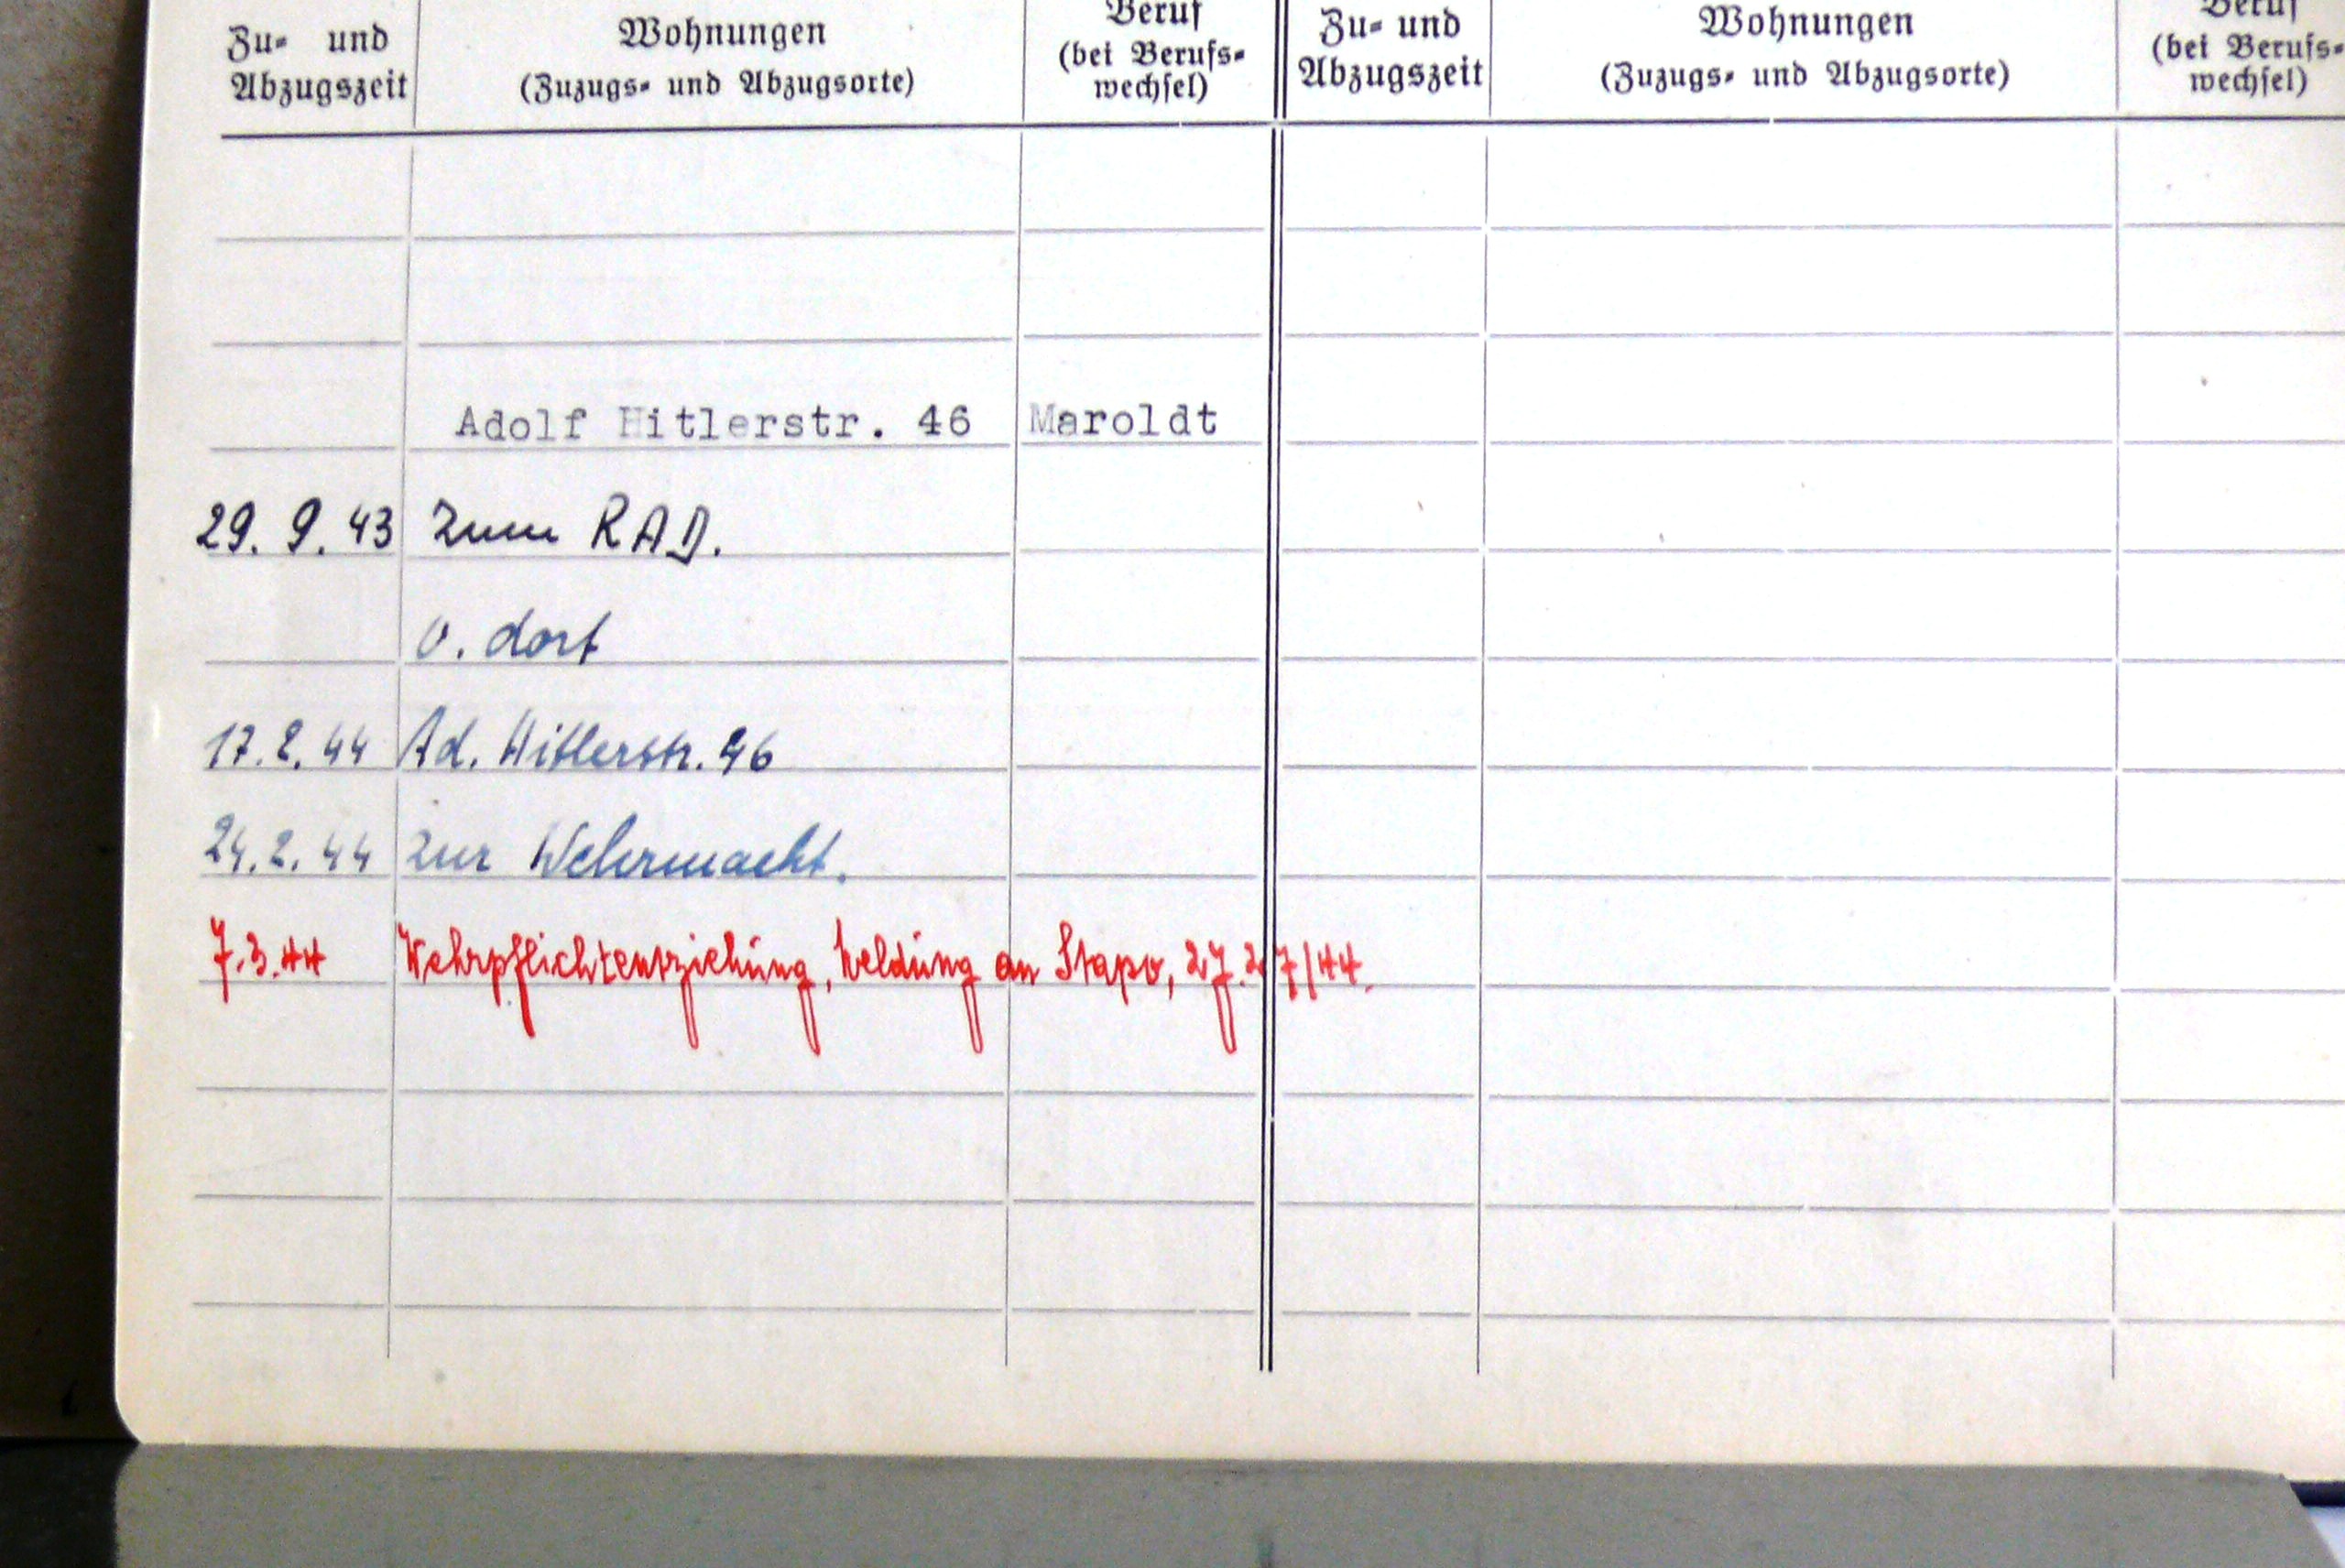 Zu- und Abzugszeit
Wohnungen
(Zuzugs- und Abzugsorte)
Beruf
(bei Berufs-
wechsel)
Zu- und
Abzugszeit
Wohnungen
(Zuzugs- und Abzugsorte)
Beruf
(bei Berufs-
wechsel)
Adolf Hitlerstr. 46 Maroldt
29. 9. 43 Zum RAD.
v. dort
17. 2. 44 Ad. Hitlerstr. 46
24. 2. 44 Zur Wehrmacht.
7.3.44 Wehrpflichtentziehung, Meldung an Stapo,